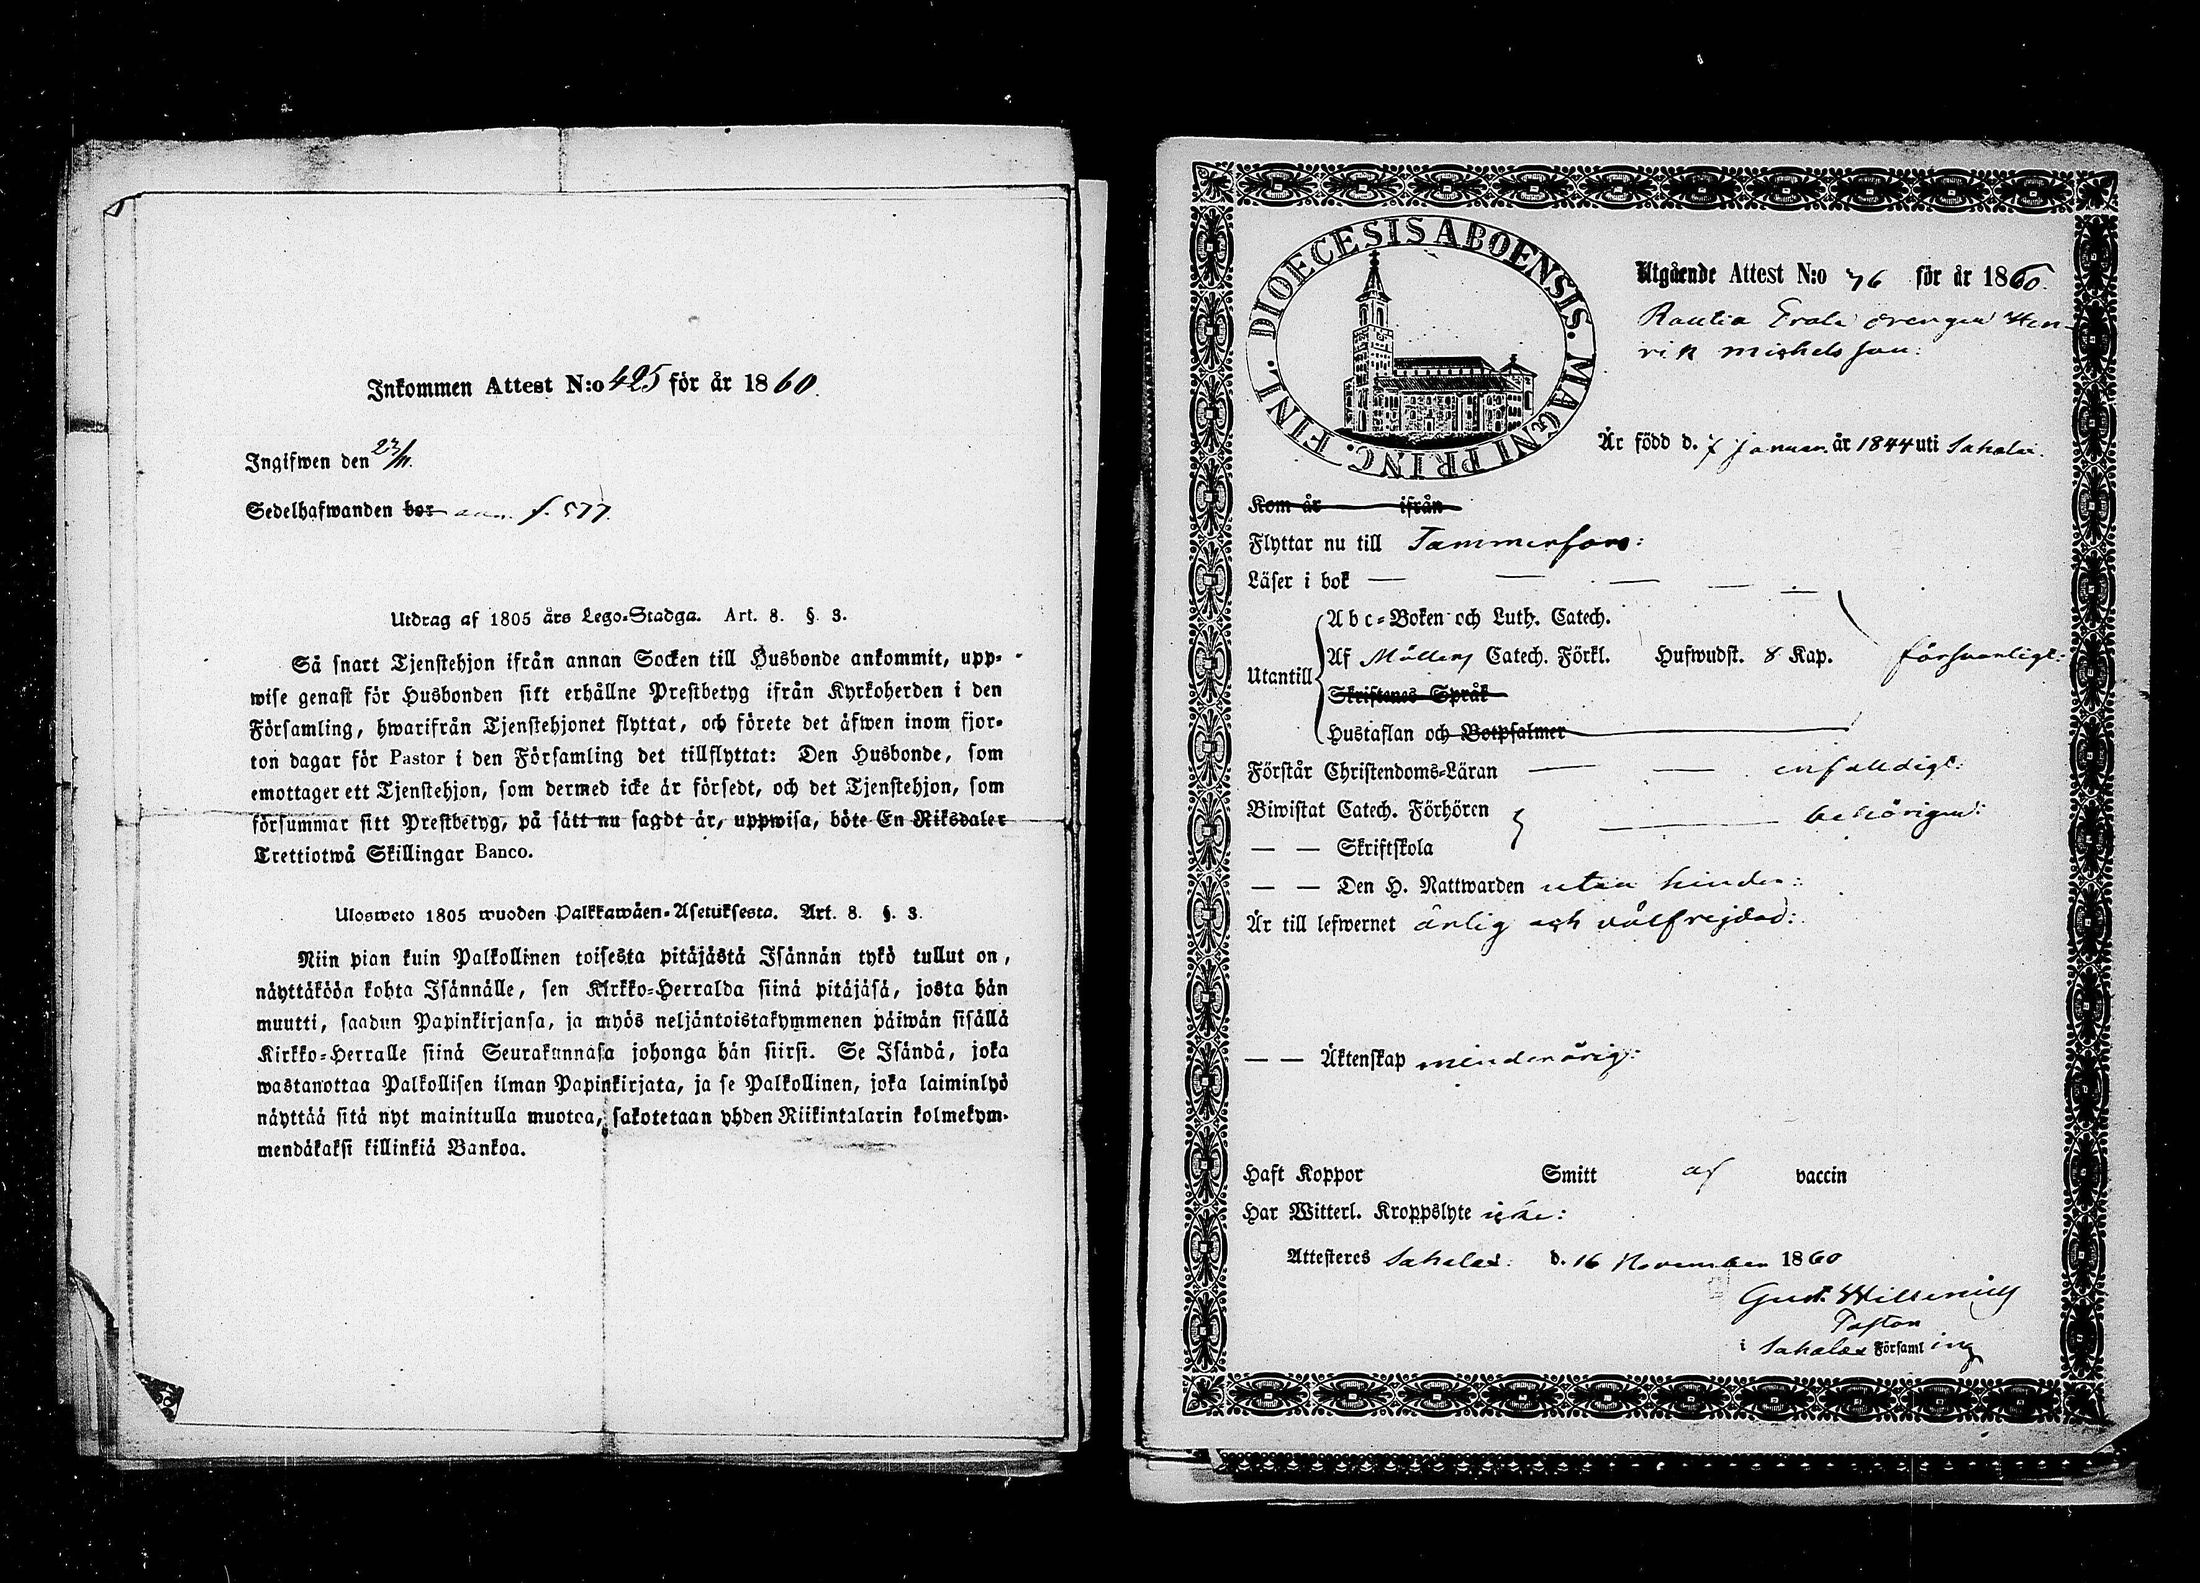 Inkommen Attest N:o 425 för år 1860.
Ingifwen den 23/11.
Sedelhafwanden bor f. 577.
Utdrag af 1805 års Lego-Stadga. Art. 8. §. 3.
Så snart Tjenstehjon ifrån annan Socken till Husbonde ankommit, upp-
wise genast för Husbonden sitt erhållne Prestbetyg ifrån Kyrkoherden i den
Församling, hwarifrån Tjenstehjonet flyttat, och förete det äfwen inom fjor-
ton dagar för Pastor i den Församling det tillflyttat: Den Husbonde, som
emottager ett Tjenstehjon, som dermed icke är försedt, och det Tjenstehjon, som
försummar sitt Prestbetyg, på sätt nu sagdt är, uppwisa, böte En Riksdaler
Trettiotwå Skillingar Banco.
Ulosweto 1805 wuoden Palkkawäen-Asetuksesta. Art. 8. §. 3.
Niin pian kuin Palkollinen toisesta pitäjästä Isännän tykö tullut on,
näyttäköön kohta Isännälle, sen Kirkko-Herralda siinä pitäjäsä, josta hän
muutti, saadun Papinkirjansa, ja myös neljäntoistakymmenen päiwän sisällä
Kirkko-Herralle siinä Seurakunnasa johonga hän siirsi. Se Isändä, joka
wastanottaa Palkollisen ilman Papinkirjata, ja se Palkollinen, joka laiminlyö
näyttää sitä nyt mainitulla muotoa, sakotetaan yhden Riikintalarin kolmekym-
mendäkaksi killinkiä Bankoa.
DIOECESIS ABOENSIS. MAGNI PRINC. FINL.
Utgående Attest N:o 76 för år 1860.
Rautia Erola drengen Hen-
rik Michelsson:
Är född d. 7 Januari år 1844 uti Sahalax.
Kom år ifrån
Flyttar nu till Tammerfors:
Läser i bok — — — — —
Abc-Boken och Luth. Catech.
Utantill Af Möllers Catech. Förkl. Hufwudst. 8 Kap. försvarligt:
Skriftenes Språk
Hustaflan och Botpsalmer
Förstår Christendoms-Läran — — enfaldigt:
Biwistat Catech. Förhören — behörigen:
— — Skriftskola
— — Den H. Nattwarden utan hinder:
Är till lefwernet ärlig och välfrejdad:
— — Äktenskap minderårig:
Haft Koppor Smitt af vaccin
Har Witterl. Kroppslyte icke:
Attesteres Sahalax: d. 16 November 1860
Gust.
Pastor
i Sahalax Församling